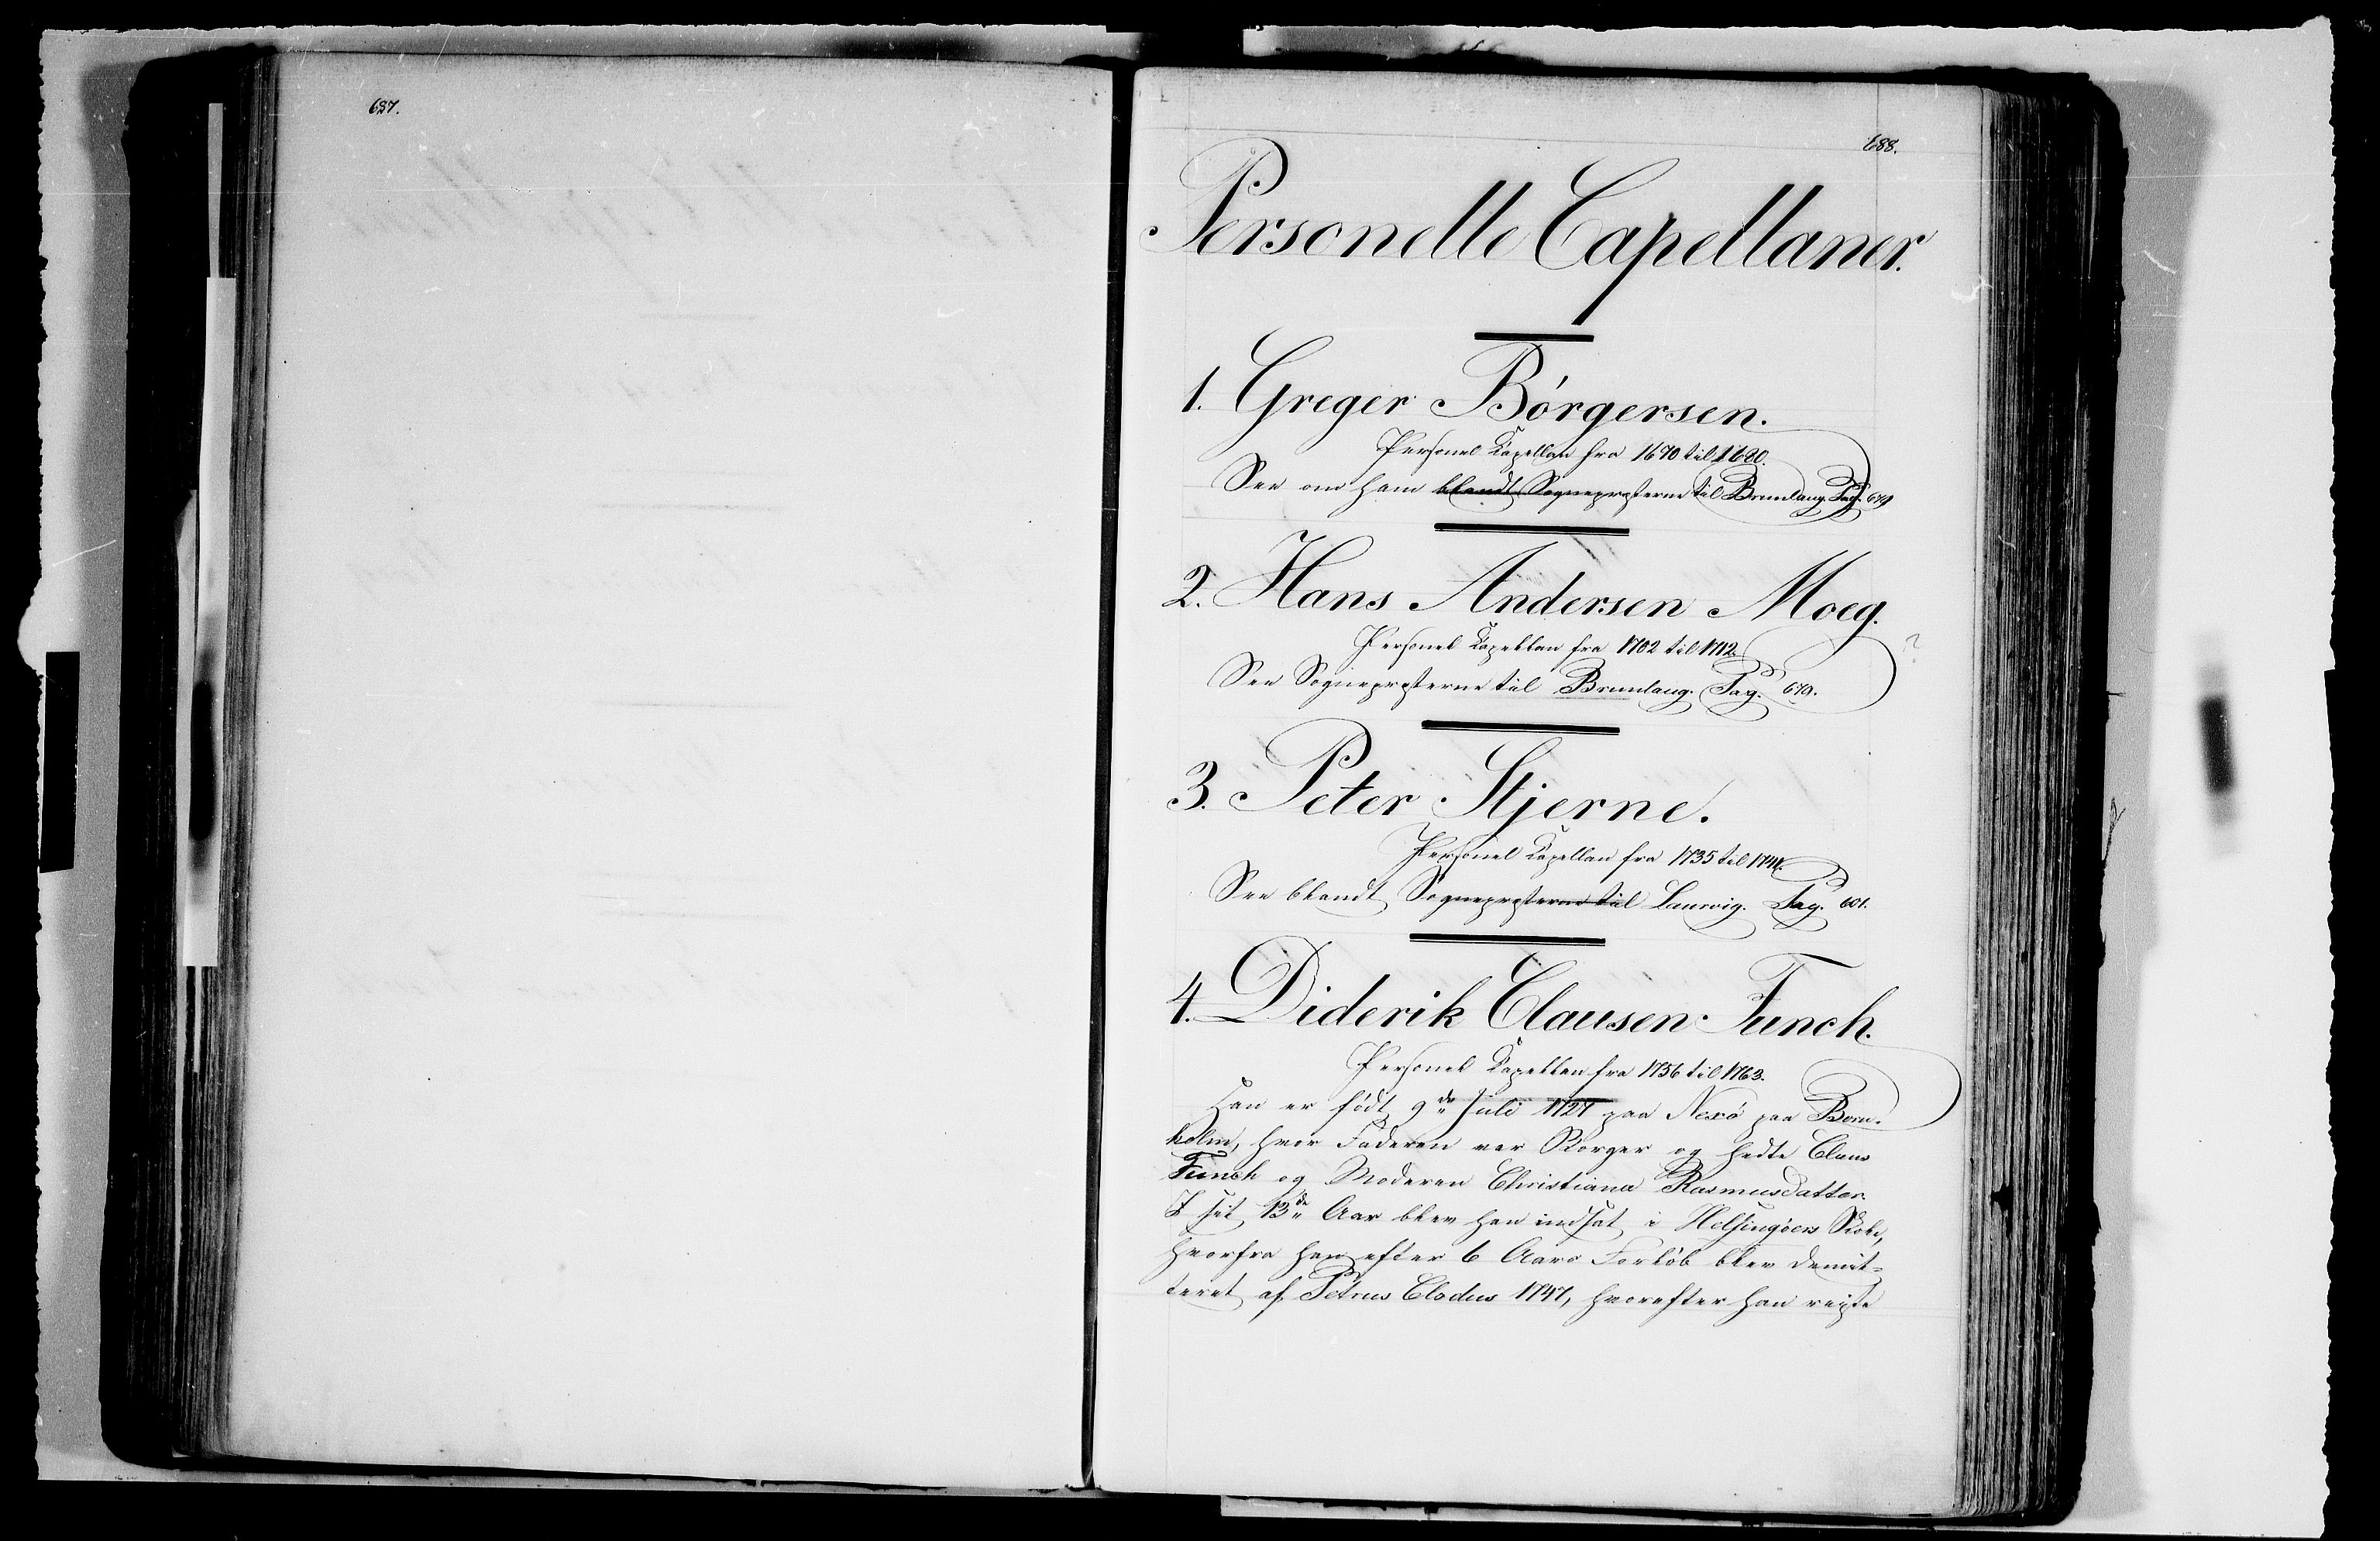 687.
688.
Personelle Capellaner.
1. Greger Börgersen.
Personel Kapellan fra 1670 til 1680.
See om ham blandt Sognepræsterne til Brunlaug. Pag. 679
2. Hans Andersen Moeg.
Personel Kapellan fra 1702 til 1712.
See Sognepræsterne til Brunlaug. Pag. 679.
3. Peter Stjerne.
Personel Kapellan fra 1735 til 1741.
See blandt Sognepræsterne til Laurvig. Pag. 601.
4. Diderik Clausen Funch.
Personel Kapellan fra 1756 til 1763.
Han er födt 9de Juli 1727 paa Nexö paa Born-
holm, hvor Faderen var Borger og hedte Claus
Funch og Moderen Christiana Rasmusdatter.
I sit 13de Aar blev han indsat i Helsingöers Skole,
hvorfra han efter 6 Aars Forlöb blev demit-
teret af Petrus Clodus 1747, hvorefter han reiste